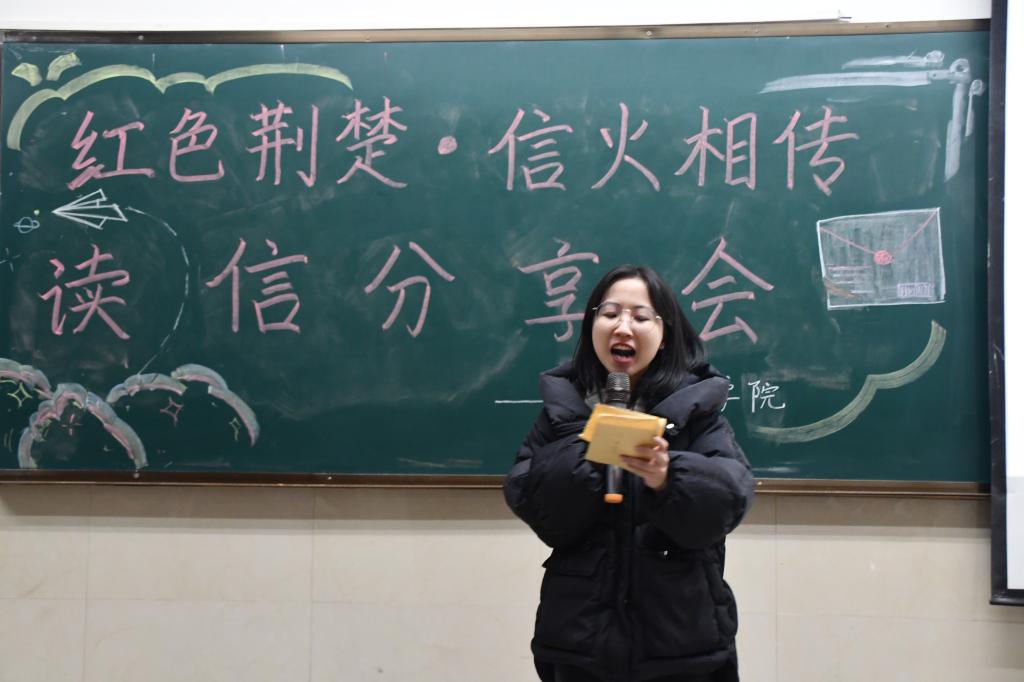 红色荆楚·信火相传
读信分享会
——学院